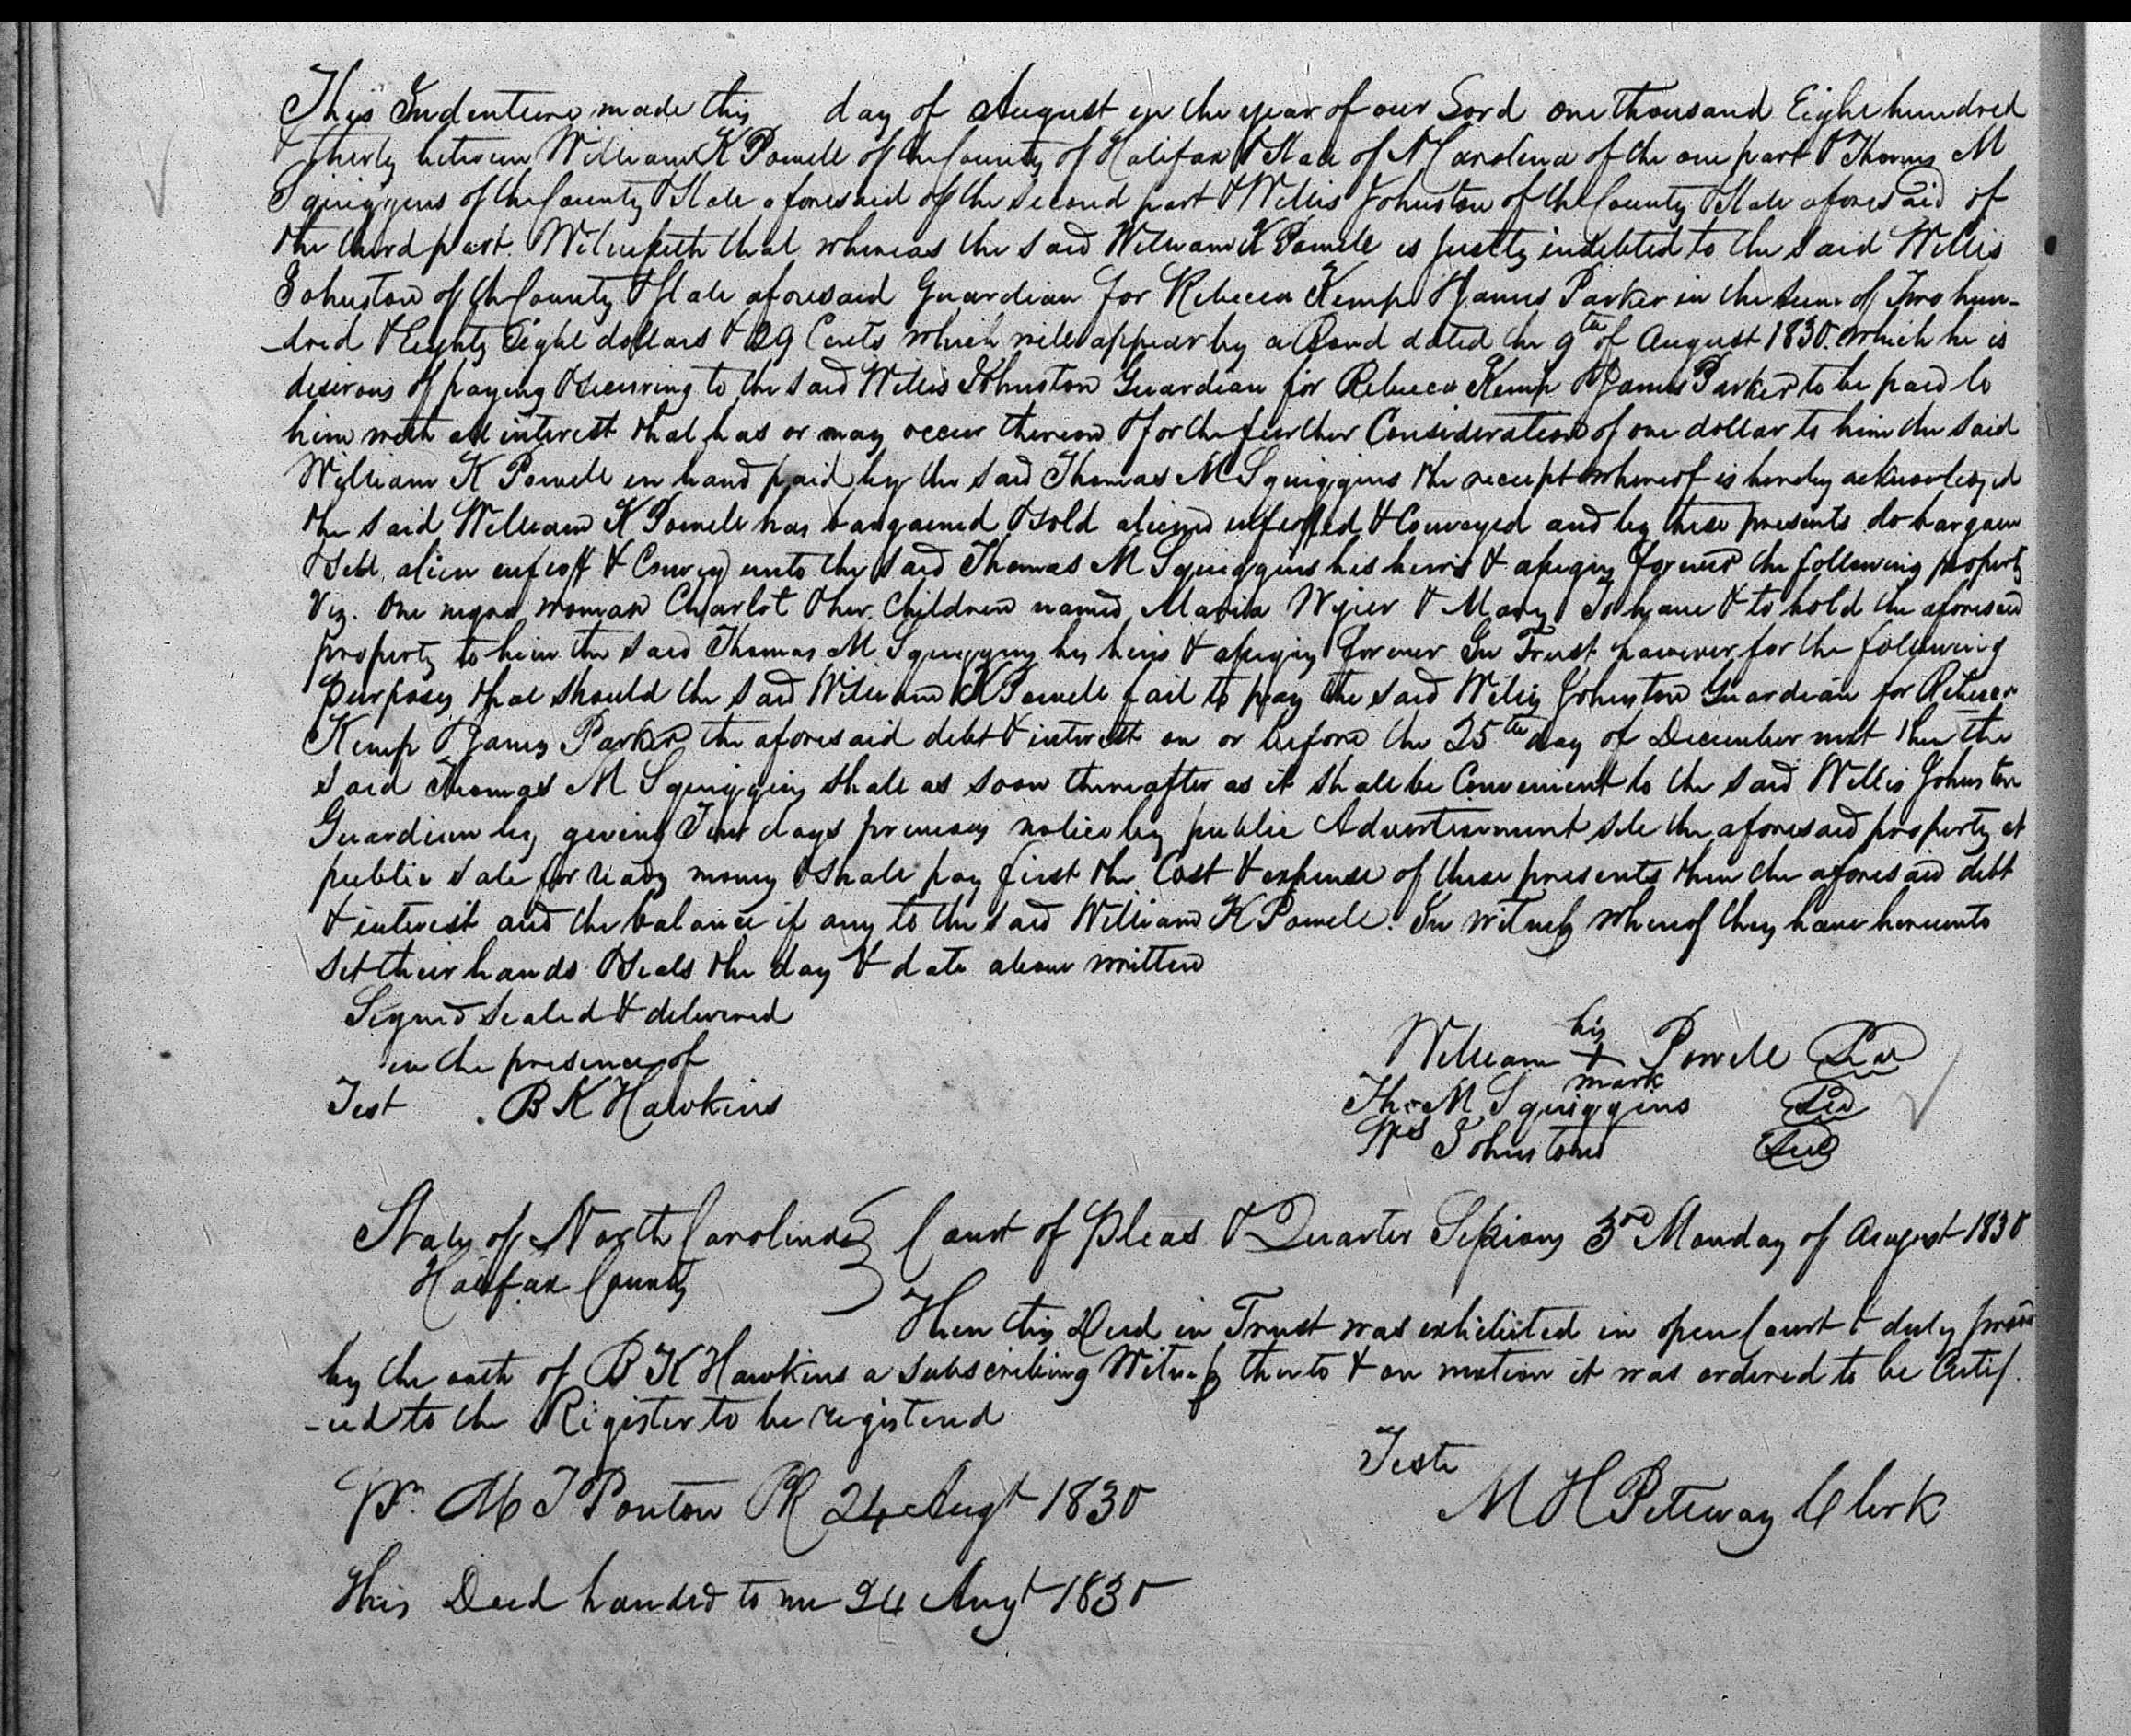 This Indenture made this day of August in the year of our Lord one thousand Eight hundred
& thirty between William K Powell of the County of Halifax & State of N Carolina of the one part & Thomas M
Squiggins of the County & State aforesaid of the second part & Willis Johnston of the County & State aforesaid of
the third part. Witnesseth that whereas the said William K Powell is justly indebted to the said Willis
Johnston of the County & State aforesaid Guardian for Rebecca Kemp & James Parker in the sum of Two hun-
-dred & Eighty Eight dollars & 29 Cents which will appear by a Bond dated the 9th of August 1830. which he is
desirous of paying & securing to the said Willis Johnston Guardian for Rebecca Kemp & James Parker to be paid to
him with all interest that has or may occur thereon & for the further Consideration of one dollar to him the said
William K Powell in hand paid by the said Thomas M Squiggins the receipt whereof is hereby acknowledged
the said William K Powell has bargained & sold aliend enfeoffed & Conveyed and by these presents do bargain
& sell, alien enfeoff & Convey unto the said Thomas M Squiggins his heirs & assigns forever the following property
Viz. One negro woman Charlot & her Children named Maria Wyier & Mary To have & to hold the aforesaid
property to him the said Thomas M. Squiggins his heirs & assigns forever In Trust however for the following
purposes that should the said William K Powell fail to pay the said Willis Johnston Guardian for Rebecca
Kemp & James Parker the aforesaid debt & interest on or before the 25th day of December next then the
said Thomas M Squiggins shall as soon thereafter as it shall be Convenient to the said Willis Johnston
Guardian by giving Ten days previous notice by public Advertisement sell the aforesaid property at
public sale for ready money & shall pay first the Cost & expense of these presents then the aforesaid debt
& interest and the balance if any to the said William K Powell. In witness whereof they have hereunto
set their hands & seals the day & date above written
Signed sealed & delivered
in the presence of
Test B K Hawkins
his
William + Powell Seal
mark
Tho M Squiggins Seal
Ws Johnston Seal
State of North Carolina } Court of Pleas & Quarter Sessions 3rd Monday of August 1830
Halifax County
Then this Deed in Trust was exhibited in open Court & duly proved
by the oath of B K Hawkins a subscribing Witness thereto & on motion it was ordered to be Certif.
-ied to the Register to be registered
Teste
M H Petteway Clerk
Pr. M T Ponton PR 24 Augt 1830
This Deed handed to me 24 Augt 1830